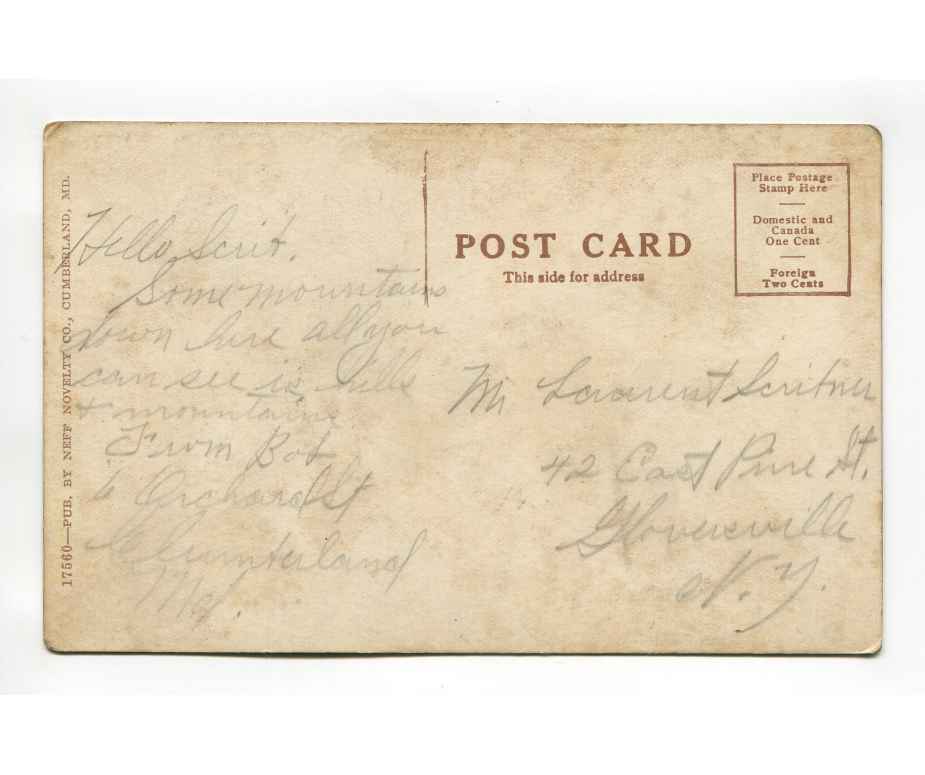 17560—PUB. BY NEFF NOVELTY CO., CUMBERLAND, MD.
Hello Scrit.
Some mountains
down here all you
can see is hills
& mountains
From Bob
6 Orchard St
Cumberland
Md.
POST CARD
This side for address
Place Postage
Stamp Here
Domestic and
Canada
One Cent
Foreign
Two Cents
Mr Scritner
42 East Pine St.
Gloversville
N.Y.